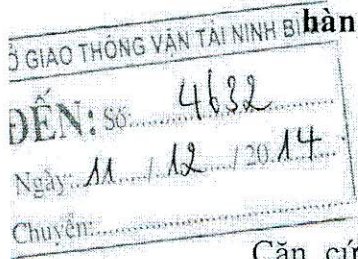 Ở GIAO THÔNG VẬN TẢI NINH BÌ
hàn
ĐẾN: Số: 4632
Ngày: 11 / 12 / 20 14
Chuyển:
Căn cứ